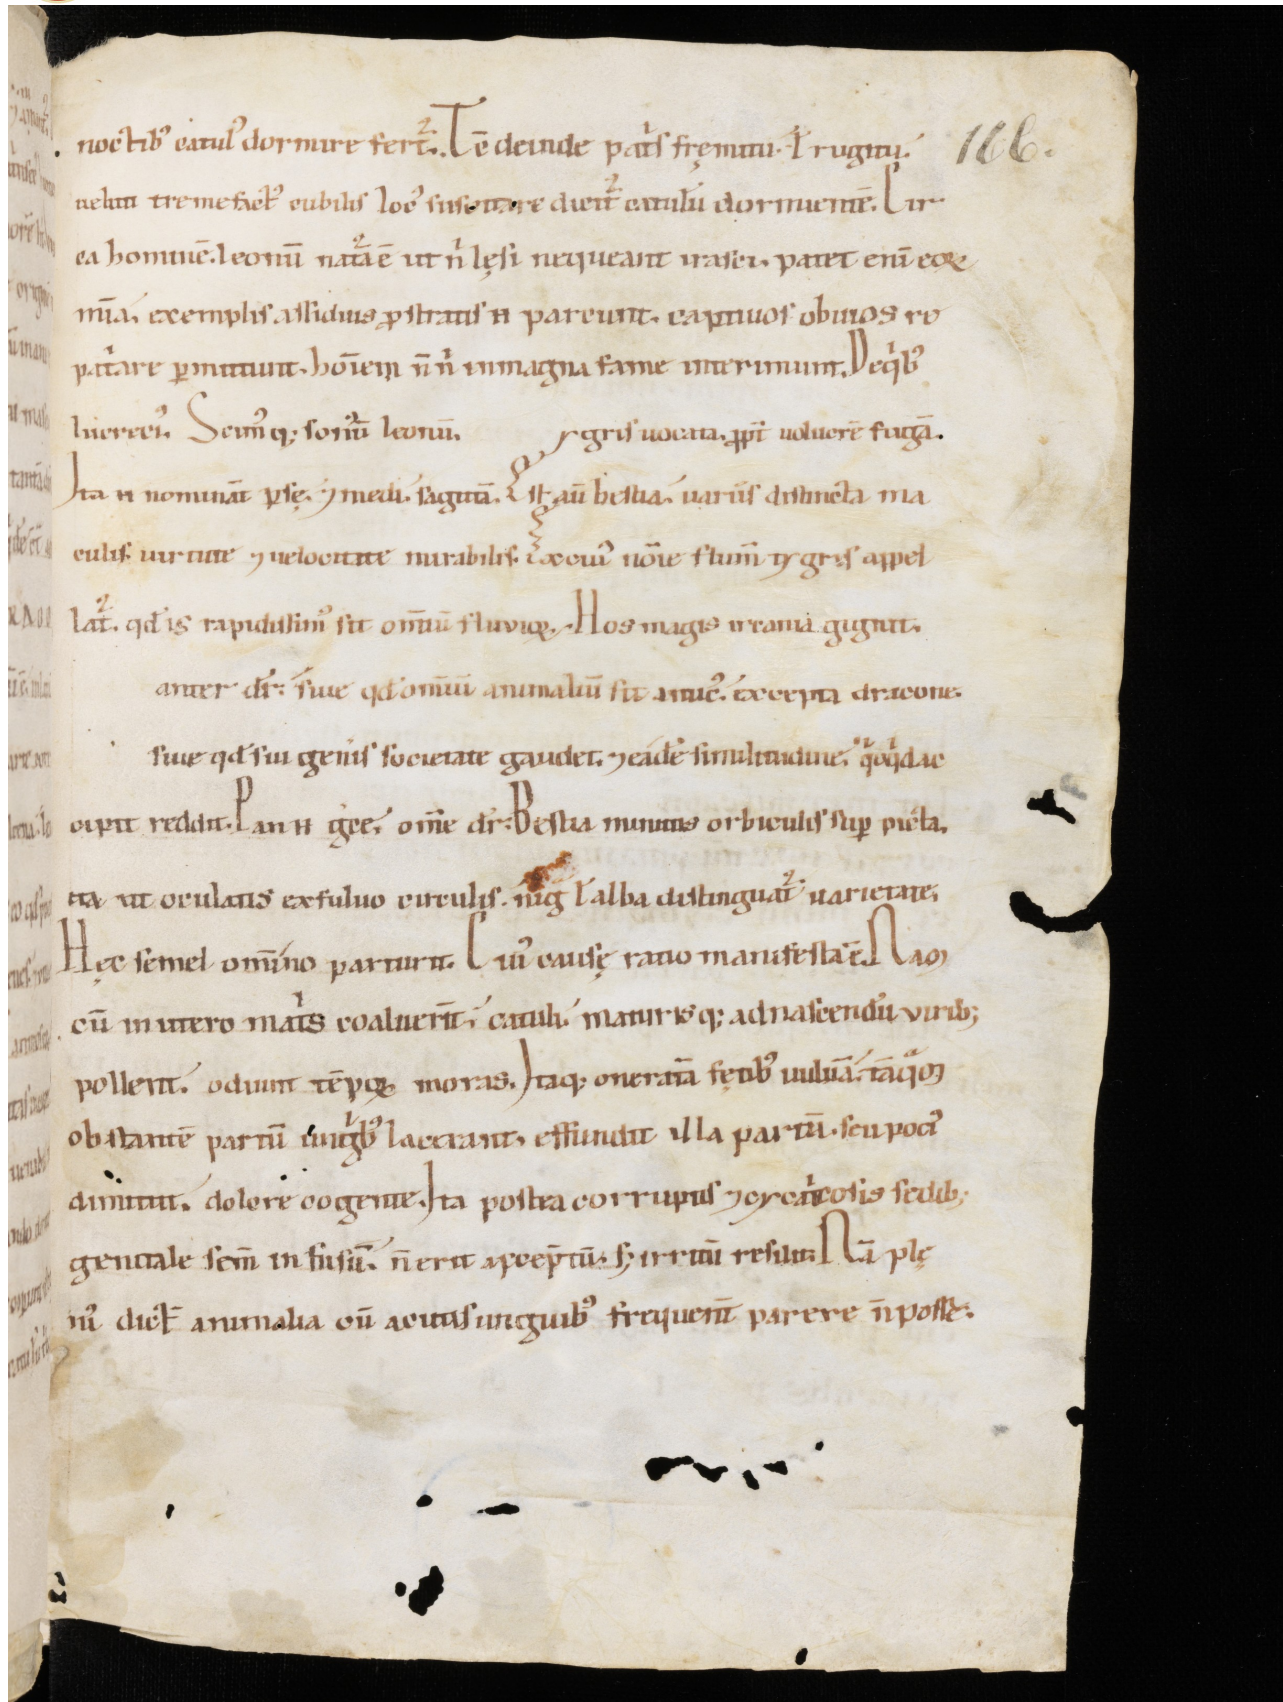 noctib᾽ catul᾽ dormire fert᷑. Tc̄ deinde pat͛s fręmitu. ł rugitu. 166.
uelut tremefact᾽ cubilis loc᾽ suscitare dicit᷑ catulū dormientē. Cir
ca hominē. leonū nat᷑a ē ut n͛ lęsi nequeant irasci. patet enī eoꝝ
mīa. exemplis assiduis ꝓstratis n parcunt. captiuos obuios re
pat͛are ꝑmittunt. hōīem n̄ n͛ in magna fame interimunt. De q͛b᾽
lucreci᾽. Scimq; sonitū leonū. ygris uocata. ꝓpt̄ uolucrē fugā.
Ita n nominat̄ ꝑsę. ⁊ medi. sagittā. Est aū bestia. uariis distincta ma
culis. uirtute ⁊ uelocitate mirabilis. Ex cui᾽ nōīe flum̄ tygris appel
lat᷑. qd̄ is rapidissim᾽ sit om̄iū fluuioꝝ. Hos magis ircania gignit.
anter dr̄. siue qd̄ om̄iū animaliū sit amic᾽. excepta dracone.
siue qd̄ sui gen̄is societate gaudet. ⁊ eādē similitudinē. q͛cq͛d ac
cipit reddit. Pan n gͨce. om̄e dr̄. Bestia minutis orbiculis suꝑ picta.
ita ut oculatis ex fuluo circulis. nig͛ ł alba distinguat᷑ uarietate.
Hęc semel om̄ino parturit. Cui᾽ causę ratio manifesta ē. Naꝫ
cū in utero mat͛s coaluerīt catuli. maturisq; ad nascendū virib;
pollent. odiunt tēpoꝝ moras. Itaq; oneratā fętib᾽ uuluā. tāq̄ꝫ
obstantē partū ung͛b᾽ lacerant. effundit illa partū. seu poci᾽
dimittit. dolore cogente. Ita postea corruptis ⁊ cycat͛cosis sedib;
genitale sem̄ infusū. n̄ erit accep̄tū. sꝫ irritū resilit. Nā plę
ni᾽ dic̄t animalia cū acutis unguib᾽ frequent̄ parere n̄ posse.